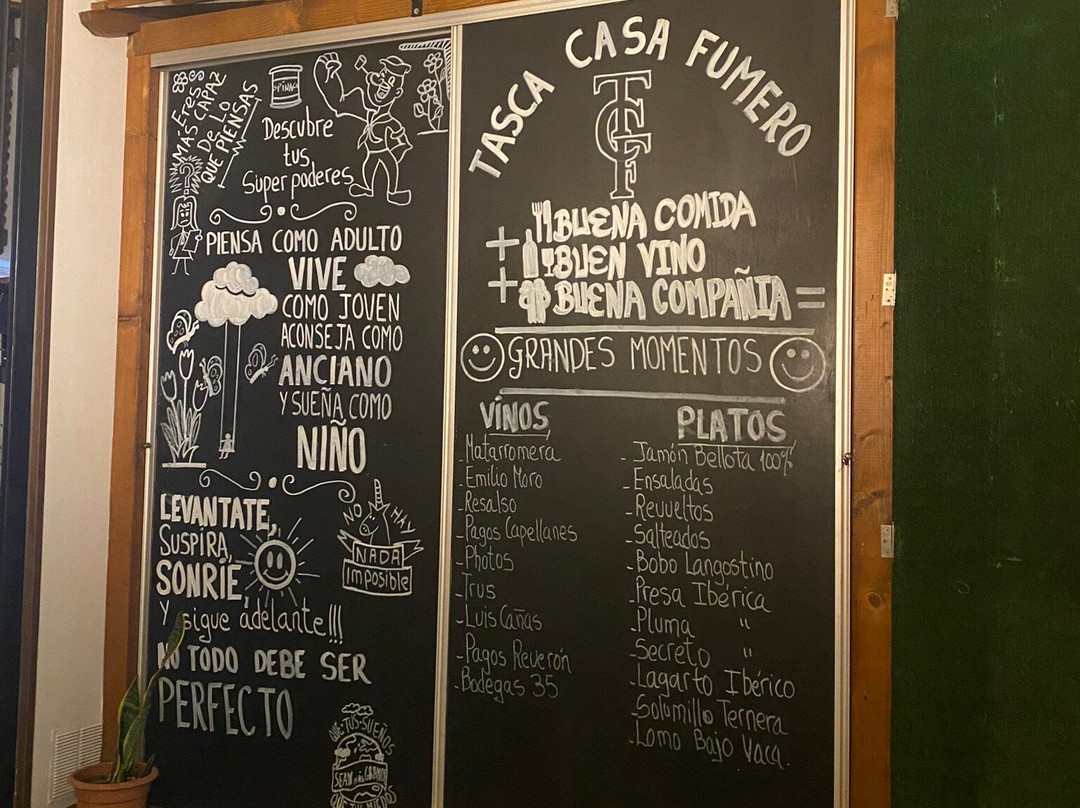 Eres
MÁS CAPAZ
De Lo
QUE PIENSAS
Descubre
tus
Superpoderes
PIENSA COMO ADULTO
VIVE
COMO JOVEN
ACONSEJA COMO
ANCIANO
Y SUEÑA COMO
NIÑO
LEVANTATE,
SUSPIRA,
SONRÍE,
Y sigue adelante!!!
NO HAY
NADA
Imposible
NO TODO DEBE SER
PERFECTO
QUE TUS SUEÑOS
SEAN MÁS GRANDES
QUE TUS MIEDOS
TASCA CASA FUMERO
TCF
BUENA COMIDA
+ BUEN VINO
+ BUENA COMPAÑIA =
GRANDES MOMENTOS
VINOS
- Matarromera
- Emilio Moro
- Resalso
- Pagos Capellanes
- Photos
- Trus
- Luis Cañas
- Pagos Reverón
- Bodegas 35
PLATOS
- Jamón Bellota 100%
- Ensaladas
- Revueltos
- Salteados
- Bobo Langostino
- Presa Ibérica
- Pluma "
- Secreto "
- Lagarto Ibérico
- Solomillo Ternera
- Lomo Bajo Vaca.